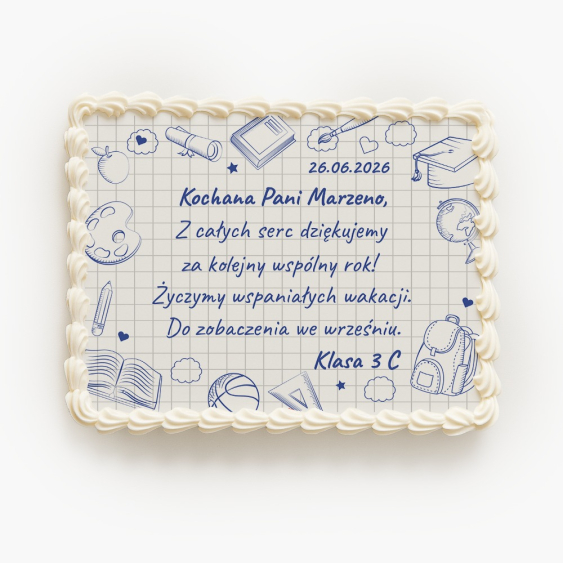 26.06.2026
Kochana Pani Marzeno,
Z całych serc dziękujemy
za kolejny wspólny rok!
Życzymy wspaniałych wakacji.
Do zobaczenia we wrześniu.
Klasa 3 C